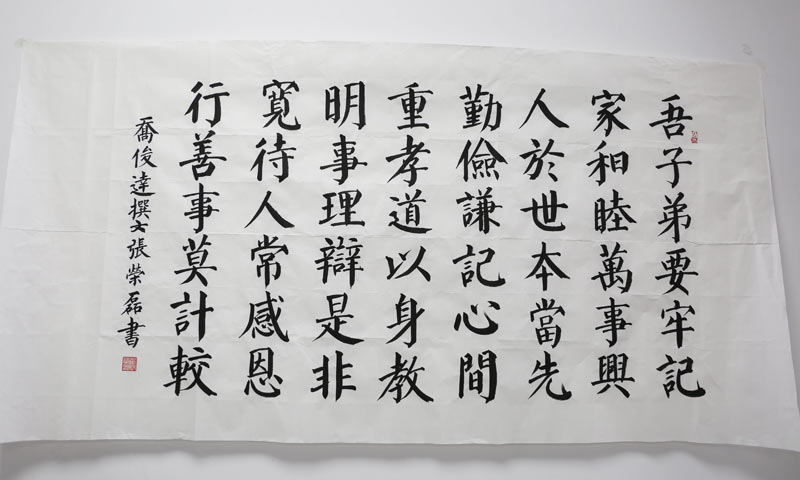 吾子弟要牢記
家和睦萬事興
人於世本當先
勤儉謙記心間
重孝道以身教
明事理辯是非
寬待人常感恩
行善事莫計較
喬俊達撰文張榮磊書